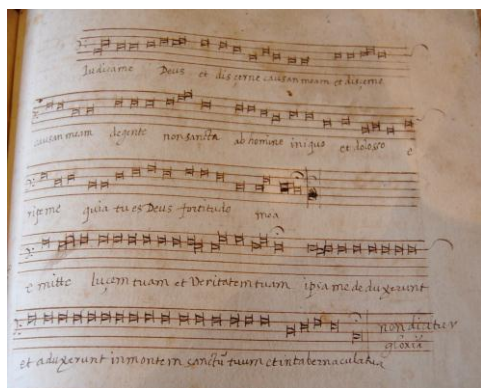 Iudica me Deus et discerne causan meam et discerne
causan meam de gente non sancta ab homine iniquo et doloso e
ripe me quia tu es Deus fortitudo mea
e mitte lucem tuam et Veritatem tuam ipsa me de duxerunt
et aduxerunt in montem sanctū tuum et in tabernacula tua
non dicitur
gloria